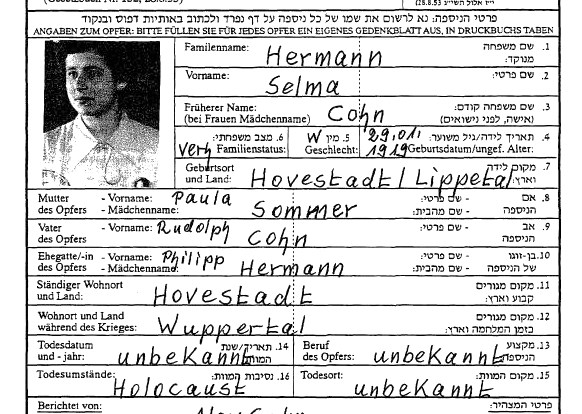 פרטי הניספה: נא לרשום את שמו של כל ניספה על דף נפרד ולכתוב באותיות דפוס ובנקוד
ANGABEN ZUM OPFER: BITTE FÜLLEN SIE FÜR JEDES OPFER EIN EIGENES GEDENKBLATT AUS, IN DRUCKBUCHS TABEN
Familienname: Hermann 1. שם משפחה מנוקד:
Vorname: Selma 2. שם פרטי:
Früherer Name: (bei Frauen Mädchenname) Cohn 3. שם משפחה קודם: (אישה, לפני נישואים)
verh Familienstatus: 6. מצב משפחתי: W Geschlecht: 5. מין 29.01. 1919 Geburtsdatum/ungef. Alter: 4. תאריך לידה/גיל משוער:
Geburtsort und Land: Hovestadt/Lippetal 7. מקום לידה וארץ:
Mutter des Opfers - Vorname: Paula - Mädchenname: Sommer 8. אם הניספה - שם פרטי: - שם מהבית:
Vater des Opfers - Vorname: Rudolph - Mädchenname: Cohn 9. אב הניספה - שם פרטי:
Ehegatte/-in des Opfers - Vorname: Philipp - Mädchenname: Hermann 10. בן-זוגו של הניספה - שם פרטי: - שם מהבית:
Ständiger Wohnort und Land: Hovestadt 11. מקום מגורים קבוע וארץ:
Wohnort und Land während des Krieges: Wuppertal 12. מקום מגורים בזמן המלחמה וארץ:
Todesdatum und - jahr: unbekannt 14. תאריך/שנת המוות: Beruf des Opfers: unbekannt 13. מקצוע הניספה:
Todesumstände: Holocaust 16. נסיבות המוות: Todesort: unbekannt 15. מקום המוות:
Berichtet von: פרטי המצהיר: